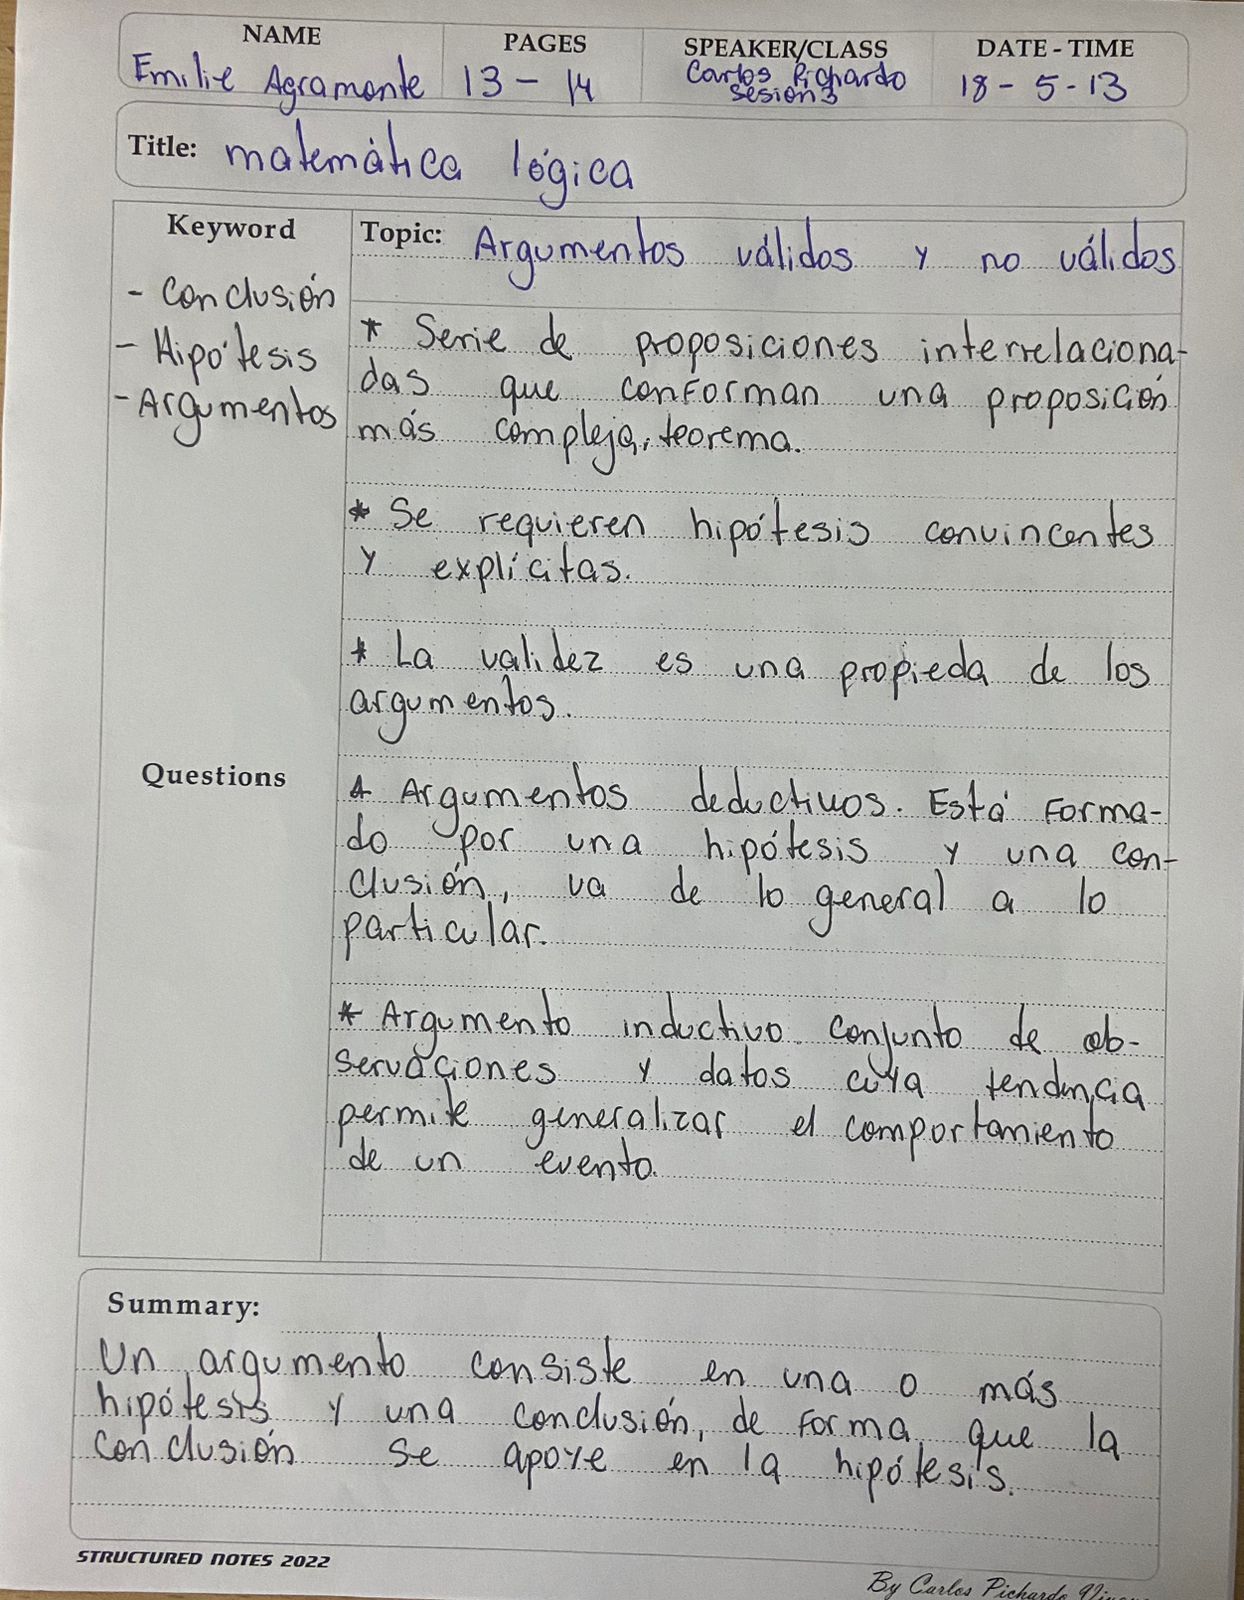 NAME
Emilie Agramonte
PAGES
13 - 14
SPEAKER/CLASS
Carlos Pichardo
Sesión 3
DATE - TIME
18 - 5 - 13
Title: matemática lógica
Keyword
- Conclusión
- Hipótesis
- Argumentos
Questions
Topic: Argumentos válidos y no válidos
* Serie de proposiciones interrelaciona-
das que conforman una proposición
más compleja, teorema.
* Se requieren hipótesis convincentes
y explícitas.
* La validez es una propieda de los
argumentos.
* Argumentos deductivos. Está forma-
do por una hipótesis y una con-
clusión, va de lo general a lo
particular.
* Argumento inductivo. conjunto de ob-
servaciones y datos cuya tendencia
permite generalizar el comportamiento
de un evento.
Summary:
Un argumento consiste en una o más
hipótesis y una conclusión, de forma que la
conclusión se apoye en la hipótesis.
STRUCTURED NOTES 2022
By Carlos Pichardo